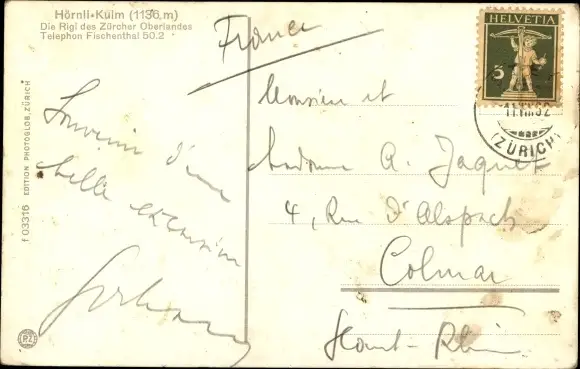 Hörnli-Kulm (1136 m)
Die Rigi des Zürcher Oberlandes
Telephon Fischenthal 50.2
France
HELVETIA
5
(ZÜRICH)
Souvenir d'une
belle excursion
Monsieur et
Madame A. Jaquet
4, Rue d'Alspach
Colmar
Haut-Rhin
f 03316 EDITION PHOTOGLOB, ZÜRICH
PZ